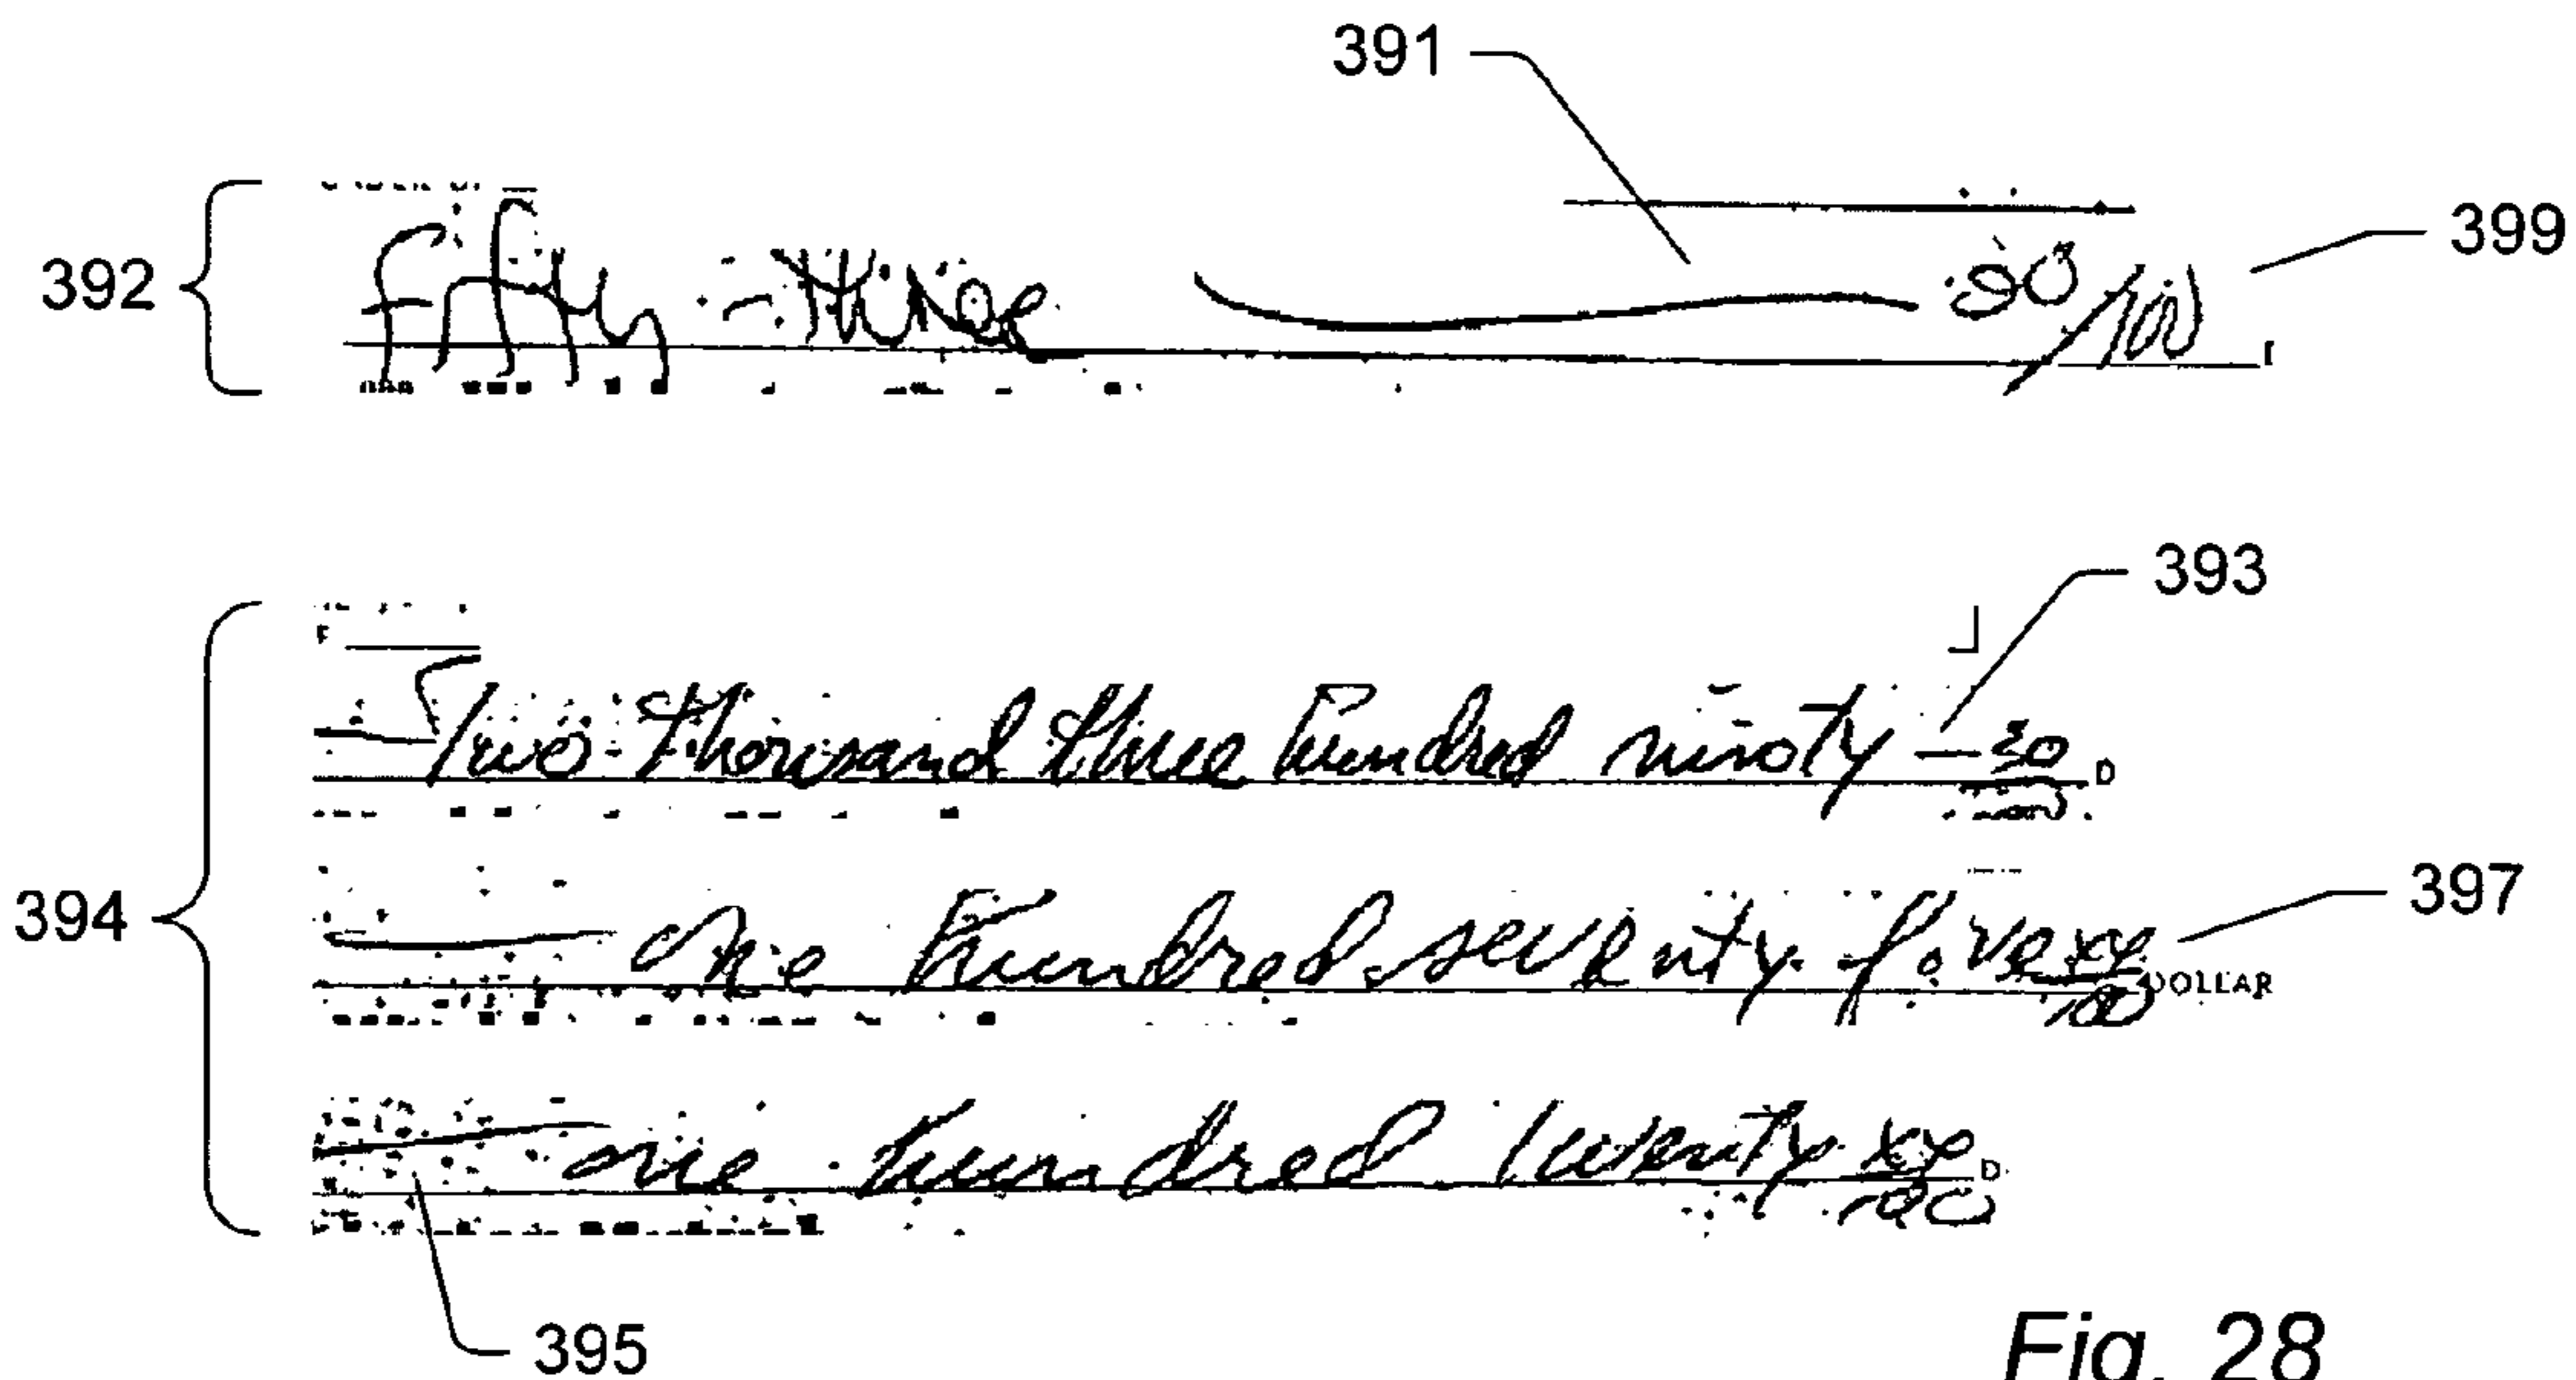 391
Fifty - three 90/100
399
392
393
Two thousand three hundred ninety - 30 D
397
394
one hundred seventy five xx/100 DOLLAR
one hundred twenty xx/100 D
395
Fig. 28